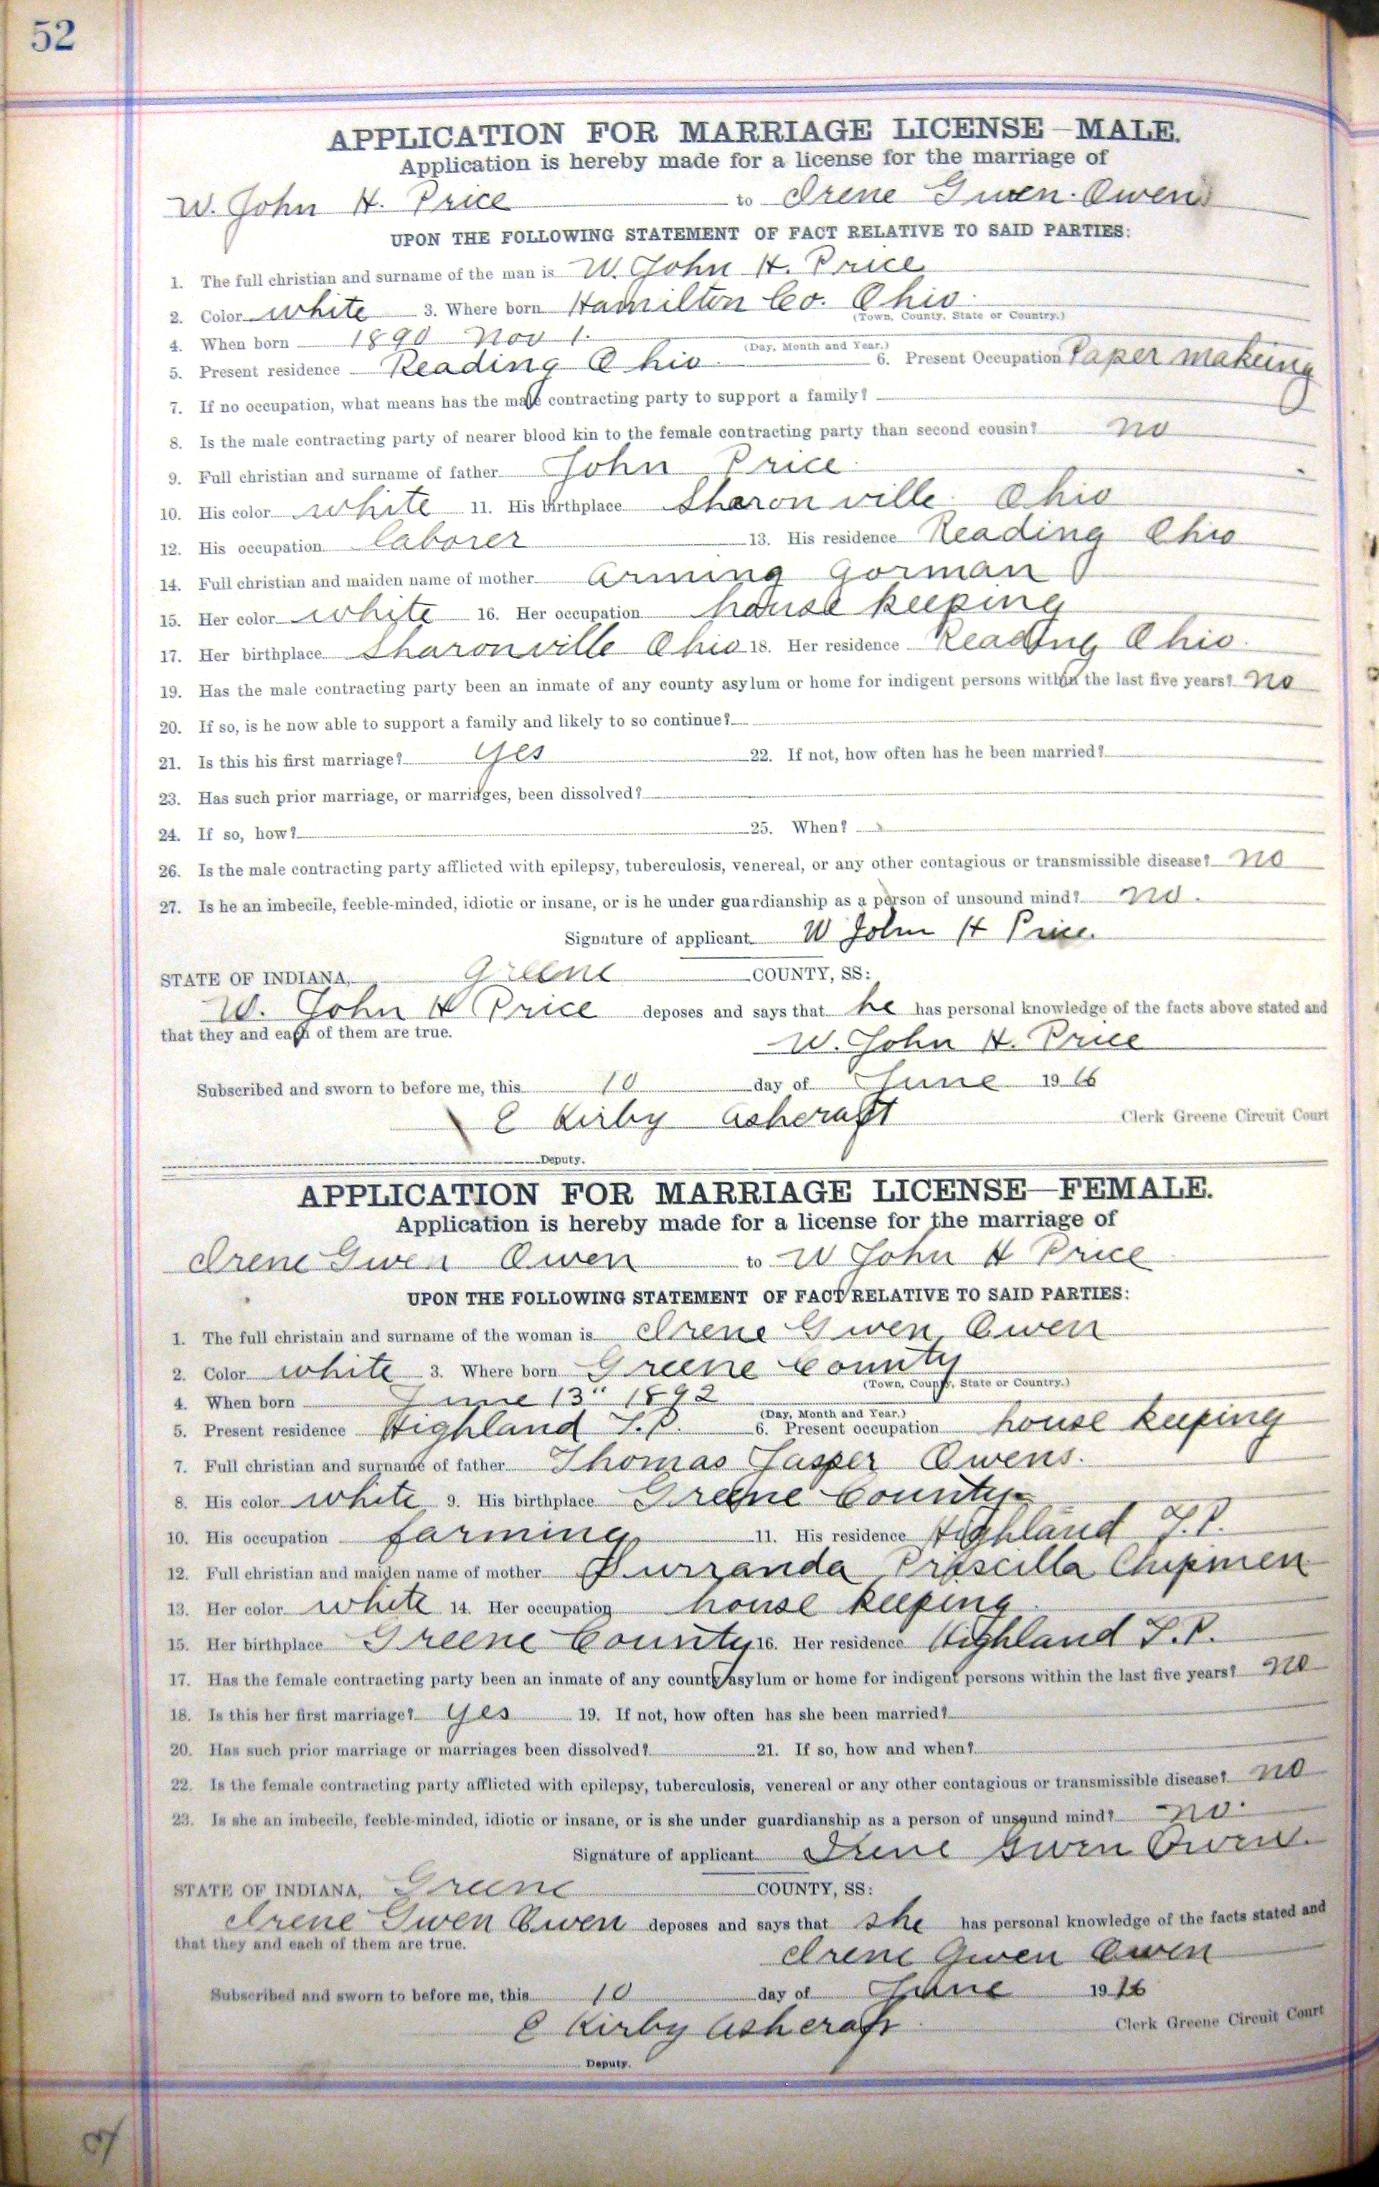 52
APPLICATION FOR MARRIAGE LICENSE—MALE.
Application is hereby made for a license for the marriage of
W. John H. Price to Irene Gwen. Owens
UPON THE FOLLOWING STATEMENT OF FACT RELATIVE TO SAID PARTIES:
1. The full christian and surname of the man is W. John H. Price
2. Color white 3. Where born Hamilton Co. Ohio.
(Town, County, State or Country.)
4. When born 1890 Nov 1.
(Day, Month and Year.)
5. Present residence Reading Ohio. 6. Present Occupation Paper makeing
7. If no occupation, what means has the male contracting party to support a family?
8. Is the male contracting party of nearer blood kin to the female contracting party than second cousin? no
9. Full christian and surname of father John Price.
10. His color white 11. His birthplace Sharonville. Ohio
12. His occupation laborer 13. His residence Reading Ohio
14. Full christian and maiden name of mother Arming Gorman
15. Her color white 16. Her occupation house keeping
17. Her birthplace Sharonville Ohio 18. Her residence Reading Ohio.
19. Has the male contracting party been an inmate of any county asylum or home for indigent persons within the last five years? no
20. If so, is he now able to support a family and likely to so continue?
21. Is this his first marriage? yes 22. If not, how often has he been married?
23. Has such prior marriage, or marriages, been dissolved?
24. If so, how? 25. When?
26. Is the male contracting party afflicted with epilepsy, tuberculosis, venereal, or any other contagious or transmissible disease? no
27. Is he an imbecile, feeble-minded, idiotic or insane, or is he under guardianship as a person of unsound mind? no.
Signature of applicant W John H Price.
STATE OF INDIANA, Greene COUNTY, SS:
W. John H Price deposes and says that he has personal knowledge of the facts above stated and
that they and each of them are true.
W. John H. Price
Subscribed and sworn to before me, this 10 day of June 1916
E Kirby Ashcraft Clerk Greene Circuit Court
Deputy.
APPLICATION FOR MARRIAGE LICENSE—FEMALE.
Application is hereby made for a license for the marriage of
Irene Gwen Owen to W John H Price
UPON THE FOLLOWING STATEMENT OF FACT RELATIVE TO SAID PARTIES:
1. The full christain and surname of the woman is Irene Gwen Owen
2. Color white 3. Where born Greene County
(Town, County, State or Country.)
4. When born June 13" 1892
(Day, Month and Year.)
5. Present residence Highland T.P. 6. Present occupation house keeping
7. Full christian and surname of father Thomas Jasper Owens.
8. His color white 9. His birthplace Greene County
10. His occupation farming 11. His residence Highland T.P.
12. Full christian and maiden name of mother Priscilla Chipmen
13. Her color white 14. Her occupation house keeping
15. Her birthplace Greene County 16. Her residence Highland T.P.
17. Has the female contracting party been an inmate of any county asylum or home for indigent persons within the last five years? no
18. Is this her first marriage? yes 19. If not, how often has she been married?
20. Has such prior marriage or marriages been dissolved? 21. If so, how and when?
22. Is the female contracting party afflicted with epilepsy, tuberculosis, venereal or any other contagious or transmissible disease? no
23. Is she an imbecile, feeble-minded, idiotic or insane, or is she under guardianship as a person of unsound mind? no.
Signature of applicant Irene Gwen Owen.
STATE OF INDIANA, Greene COUNTY, SS:
Irene Gwen Owen deposes and says that she has personal knowledge of the facts stated and
that they and each of them are true.
Irene Gwen Owen
Subscribed and sworn to before me, this 10 day of June 1916
E Kirby Ashcraft Clerk Greene Circuit Court
Deputy.